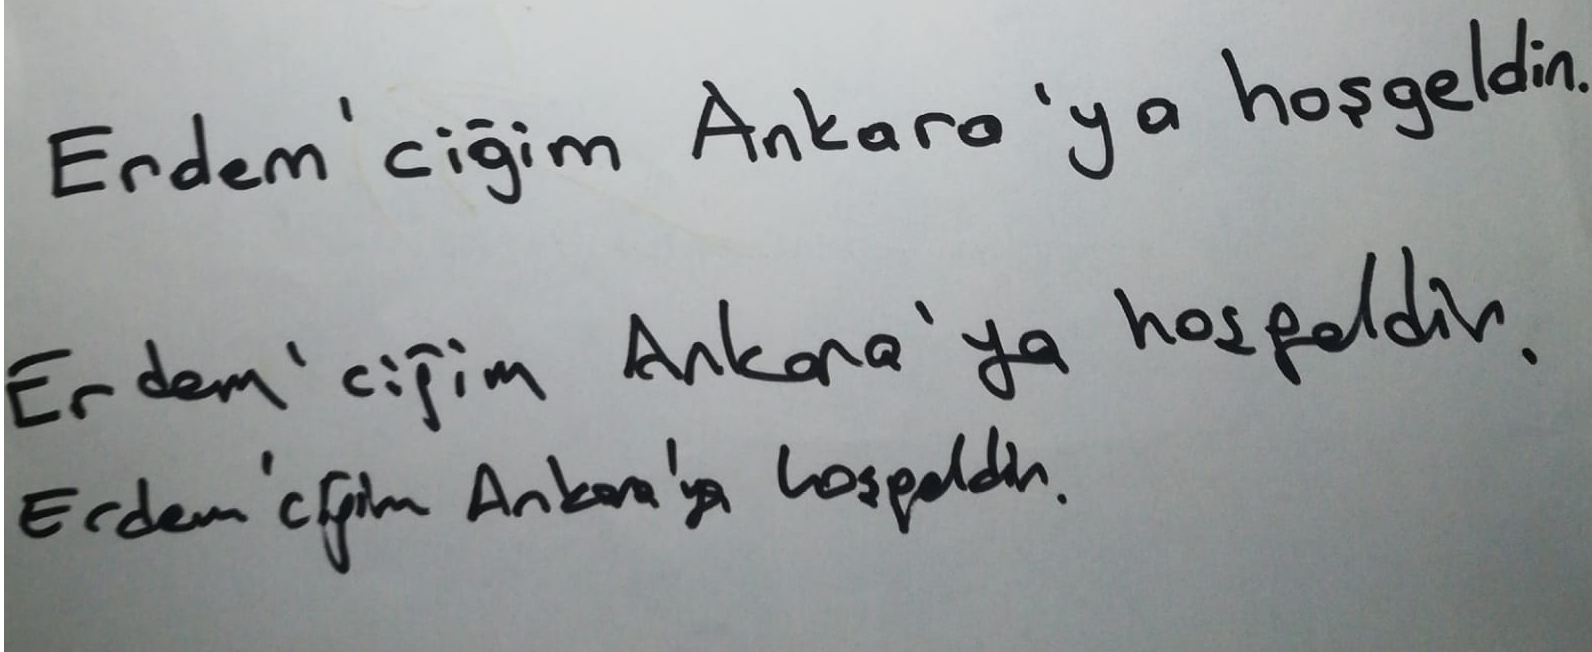 Erdem'ciğim Ankara'ya hoşgeldin.
Erdem'ciğim Ankara'ya hoşgeldin.
Erdem'ciğim Ankara'ya hoşgeldin.